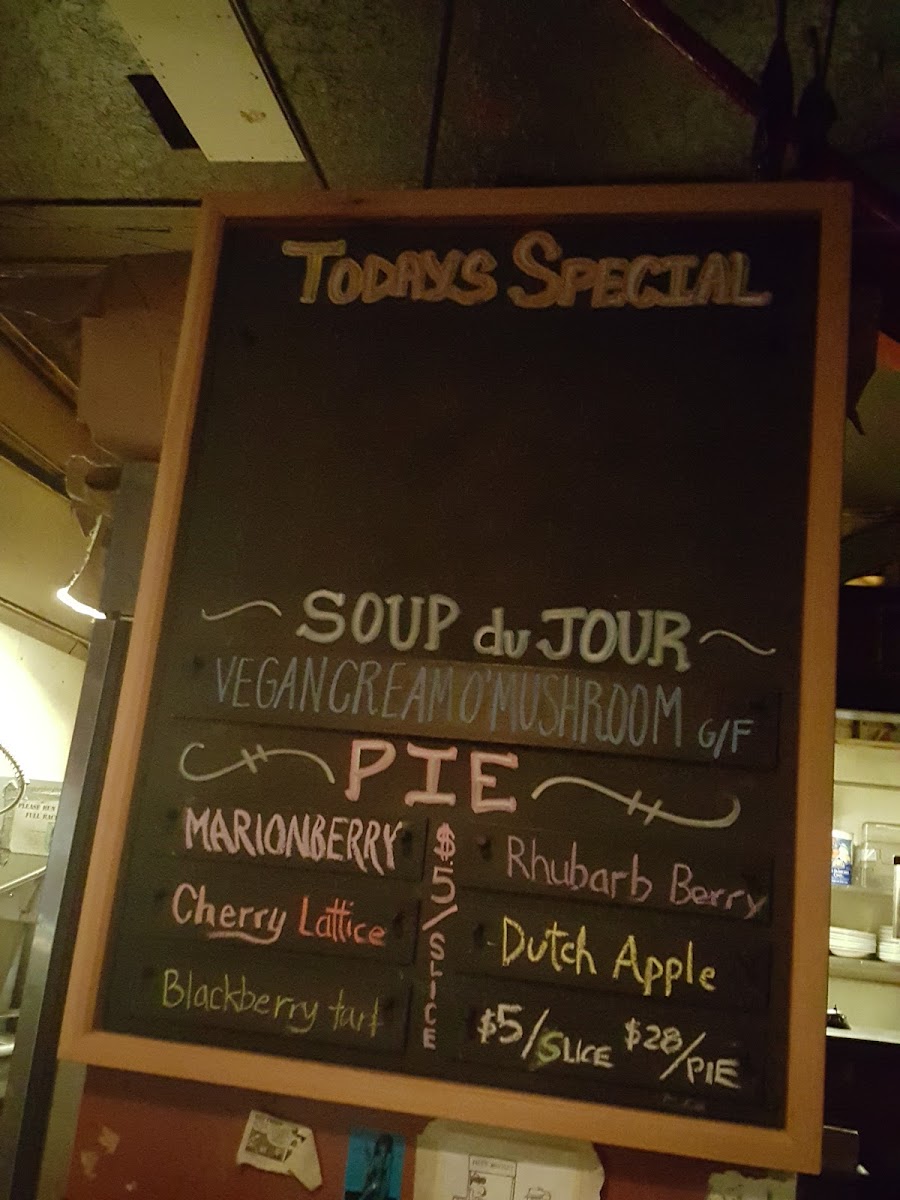 TODAYS SPECIAL
SOUP du JOUR
VEGAN CREAM O'MUSHROOM G/F
PIE
MARIONBERRY
Cherry Lattice
Blackberry tart
$5/SLICE
Rhubarb Berry
Dutch Apple
$5/SLICE $28/PIE